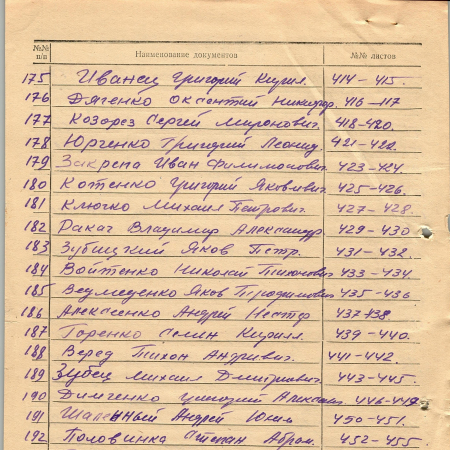 №№ п/п Наименование документов №№ листов
175 Иванец Григорий Кирил. 414-415.
176 Дяченко Оксентий Никифор. 416-117
177 Козарез Сергей Миронович. 418-420.
178 Юрченко Григорий Леонид. 421-422.
179 Закрепа Иван Филимонович 423-424.
180 Котенко Григорий Яковлевич 425-426.
181 Ключко Михаил Петрович. 427-428.
182 Ракач Владимир Александр. 429-430.
183 Зубицкий Яков Петр. 431-432.
184 Войтенко Николай Тихонович 433-434.
185 Ведмеденко Яков Трофимович 435-436.
186 Алексеенко Андрей Нестор 437-438.
187 Горенко Семен Кирил. 439-440.
188 Веред Тихон Андреевич. 441-442.
189 Зубец Михаил Дмитриевич. 443-445.
190 Димченко Григорий Алексан. 446-449.
191 Шаленный Андрей Юхим 450-451.
192 Половинка Степан Абрам. 452-455.